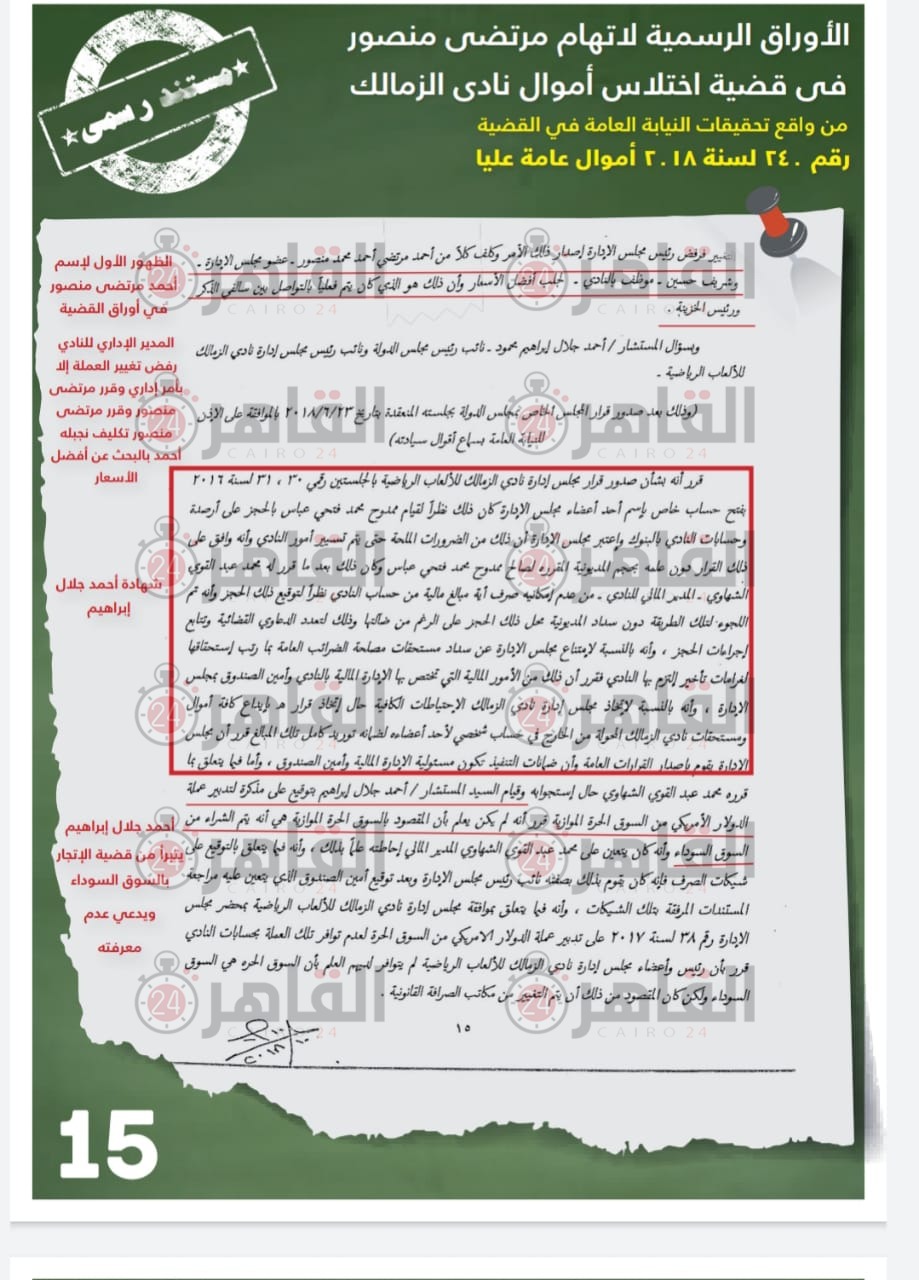 الأوراق الرسمية لاتهام مرتضى منصور
فى قضية اختلاس أموال نادى الزمالك
من واقع تحقيقات النيابة العامة في القضية
رقم ٢٤٠ لسنة ٢٠١٨ أموال عامة عليا
★ مستند رسمى ★
التغيير فرفض رئيس مجلس الإدارة إصدار ذلك الأمر وكلف كلاً من أحمد مرتضي أحمد محمد منصور ـ عضو مجلس الإدارة ـ
وشريف حسين ـ موظف بالنادي ـ لجلب أفضل الأسعار وأن ذلك هو الذي كان يتم فعلياً بالتواصل بين سالفي الذكر
ورئيس الخزينة .
وبسؤال المستشار / أحمد جلال إبراهيم محمود ـ نائب رئيس مجلس الدولة ونائب رئيس مجلس إدارة نادي الزمالك
للألعاب الرياضية ـ
(وذلك بعد صدور قرار المجلس الخاص بمجلس الدولة بجلسته المنعقدة بتاريخ ٢٠١٨/٦/٢٣ بالموافقة على الإذن
للنيابة العامة بسماع أقوال سيادته)
قرر أنه بشأن صدور قرار مجلس إدارة نادي الزمالك للألعاب الرياضية بالجلستين رقمي ٣٠ ، ٣١ لسنة ٢٠١٦
بفتح حساب خاص بإسم أحد أعضاء مجلس الإدارة كان ذلك نظراً لقيام ممدوح محمد فتحي عباس بالحجز على أرصدة
وحسابات النادي بالبنوك واعتبر مجلس الإدارة أن ذلك من الضرورات الملحة حتى يتم تسيير أمور النادي وأنه وافق على
ذلك القرار دون علمه بحجم المديونية المقررة لصالح ممدوح محمد فتحي عباس وكان ذلك بعد ما قرر له محمد عبد القوي
الشهاوي ـ المدير المالي للنادي ـ من عدم إمكانية صرف أية مبالغ مالية من حساب النادي نظراً لتوقيع ذلك الحجز وأنه تم
اللجوء لتلك الطريقة دون سداد المديونية محل ذلك الحجز على الرغم من ضآلتها وذلك لتعدد الدعاوي القضائية وتتابع
إجراءات الحجز ، وأنه بالنسبة لإمتناع مجلس الإدارة عن سداد مستحقات مصلحة الضرائب العامة بما رتب إستحقاقها
لغرامات تأخير إلتزم بها النادي فقرر أن ذلك من الأمور المالية التي تختص بها الإدارة المالية بالنادي وأمين الصندوق بمجلس
الإدارة ، وأنه بالنسبة لإتخاذ مجلس إدارة نادي الزمالك الإحتياطات الكافية حال إتخاذ قراره بإيداع كافة أموال
ومستحقات نادي الزمالك المحولة من الخارج في حساب شخصي لأحد أعضاءه لضمانه توريد كامل تلك المبالغ قرر أن مجلس
الإدارة يقوم بإصدار القرارات العامة وأن ضمانات التنفيذ تكون مسئولية الإدارة المالية وأمين الصندوق ، وأما فيما يتعلق بما
قرره محمد عبد القوي الشهاوي حال إستجوابه وقيام السيد المستشار / أحمد جلال إبراهيم بتوقيع على مذكرة لتدبير عملة
الدولار الأمريكي من السوق الحرة الموازية قرر أنه لم يكن يعلم بأن المقصود بالسوق الحرة الموازية هي أنه يتم الشراء من
السوق السوداء وأنه كان يتعين على محمد عبد القوي الشهاوي المدير المالي إحاطته علماً بذلك ، وأنه فيما يتعلق بالتوقيع على
شيكات الصرف فإنه كان يقوم بذلك بصفته نائب رئيس مجلس الإدارة وبعد توقيع أمين الصندوق الذي يتعين عليه مراجعة
المستندات المرفقة بتلك الشيكات ، وأنه فيما يتعلق بموافقة مجلس إدارة نادي الزمالك للألعاب الرياضية بمحضر مجلس
الإدارة رقم ٣٨ لسنة ٢٠١٧ على تدبير عملة الدولار الامريكي من السوق الحرة لعدم توافر تلك العملة بحسابات النادي
قرر بأن رئيس وأعضاء مجلس إدارة نادي الزمالك للألعاب الرياضية لم يتوافر لديهم العلم بأن السوق الحره هي السوق
السوداء ولكن كان المقصود من ذلك أن يتم التغيير من مكاتب الصرافة القانونية .
١٥
الظهور الأول لإسم
أحمد مرتضى منصور
في أوراق القضية
المدير الإداري للنادي
رفض تغيير العملة إلا
بأمر إداري وقرر مرتضى
منصور وقرر مرتضى
منصور تكليف نجيله
أحمد بالبحث عن أفضل
الأسعار
شهادة أحمد جلال
إبراهيم
أحمد جلال إبراهيم
يتبرأ من قضية الإتجار
بالسوق السوداء
ويدعي عدم
معرفته
15
القاهرة 24
CAIRO 24